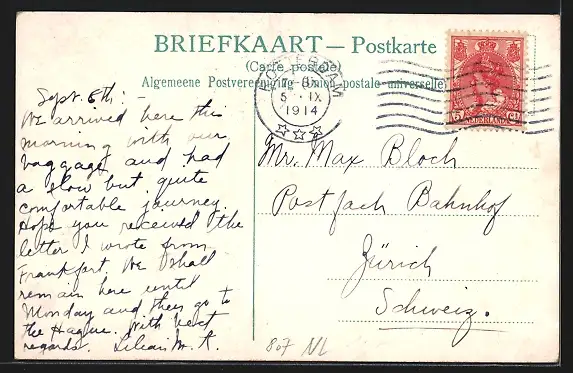 BRIEFKAART — Postkarte
(Carte postale)
Algemeene Postvereeniging-Union postale universelle
ROTTERDAM
5 IX
1914
5 Ct
NEDERLAND
Sept. 5th:
We arrived here this
morning with our
baggage and had
a slow but quite
comfortable journey.
Hope you received the
letter I wrote from
Frankfort. We shall
remain here until
Monday and then go to
the Hague. With best
regards. Lilian M. K.
Mr. Max Bloch
Postfach Bahnhof
Zürich
Schweiz.
807 NL